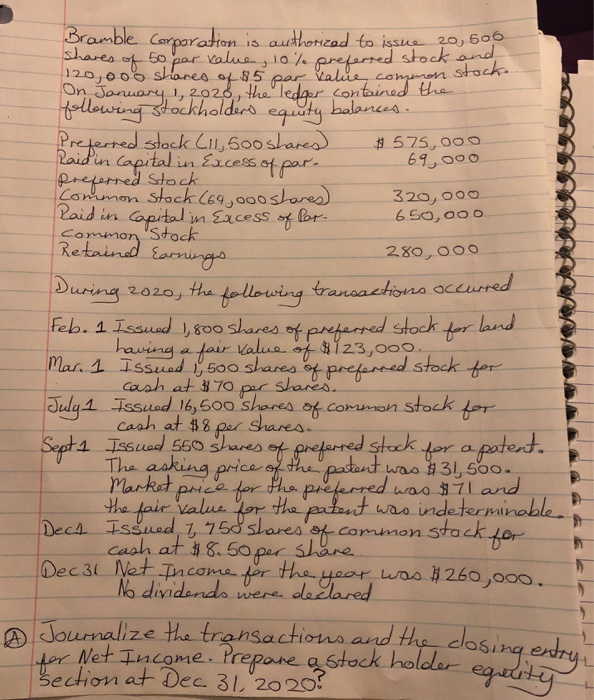 Bramble Corporation is authorized to issue 20,500
shares of 50 par value, 10% preferred stock and
120,000 shares of $5 par value common stock.
On January 1, 2020, the ledger contained the
following stockholders equity balances.
Preferred stock (11,500 shares) $575,000
Paid in Capital in Excess of par- 69,000
Preferred Stock
Common Stock (64,000 shares) 320,000
Paid in Capital in Excess of Par- 650,000
Common Stock
Retained Earnings 280,000
During 2020, the following transactions occurred
Feb. 1 Issued 1,800 shares of preferred stock for land
having a fair value of $123,000.
Mar. 1 Issued 1,500 shares of preferred stock for
cash at $70 per shares.
July 1 Issued 16,500 shares of common stock for
cash at $8 per shares.
Sept 1 Issued 550 shares of preferred stock for a patent.
The asking price of the patent was $31,500.
Market price for the preferred was $71 and
the fair value for the patent was indeterminable.
Dec 1 Issued 7,750 shares of common stock for
cash at $8.50 per share
Dec 31 Net Income for the year was $260,000.
No dividends were declared
A Journalize the transactions and the closing entry
for Net Income. Prepare a stock holder equity
Section at Dec 31, 2020?